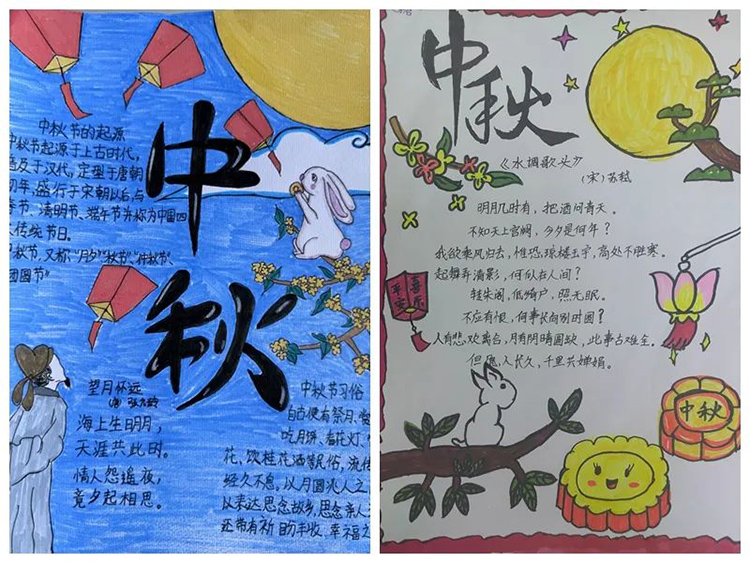 中
秋
中秋节的起源
中秋节起源于上古时代,
及于汉代,定型于唐朝
初年,盛行于宋朝以后,与
春节、清明节、端午节并称为中国四
传统节日。
中秋节,又称"月夕""秋节"、"仲秋节、
团圆节"
望月怀远
(唐) 张九龄
海上生明月,
天涯共此时。
情人怨遥夜,
竟夕起相思。
中秋节习俗
自古便有祭月、
吃月饼、看花灯、
花、饮桂花酒等民俗,流传
经久不息,以月圆兆人之
以表达思念故乡,思念亲人
还带有祈助丰收、幸福之
中秋
《水调歌头》
(宋)苏轼
明月几时有,把酒问青天。
不知天上宫阙,今夕是何年?
我欲乘风归去,惟恐琼楼玉宇,高处不胜寒。
起舞弄清影,何似在人间?
转朱阁,低绮户,照无眠。
不应有恨,何事长向别时圆?
人有悲欢离合,月有阴晴圆缺,此事古难全。
但愿人长久,千里共婵娟。
平安
喜乐
中秋